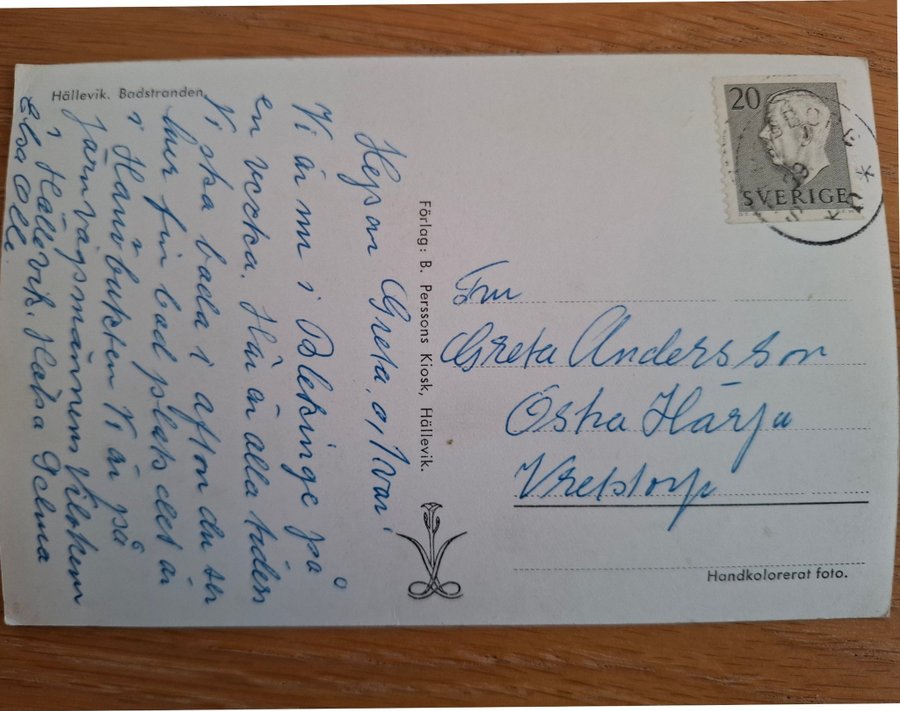 Hällevik. Badstranden.
Hejsan Greta, o, Ivar!
Vi är nu i Blekinge på
en vecka. Här är alla tiders
Vi ska bada i afton du ser
hur fin bad plats det är
i Hanöbukten Vi är på
Järnvägsmännens Vilohem
i Hällevik. Hälsa Selma
Elsa Olle
Förlag: B. Perssons Kiosk, Hällevik.
20
SVERIGE
Fru
Greta Andersson
Östra Härja
Vretstorp
Handkolorerat foto.